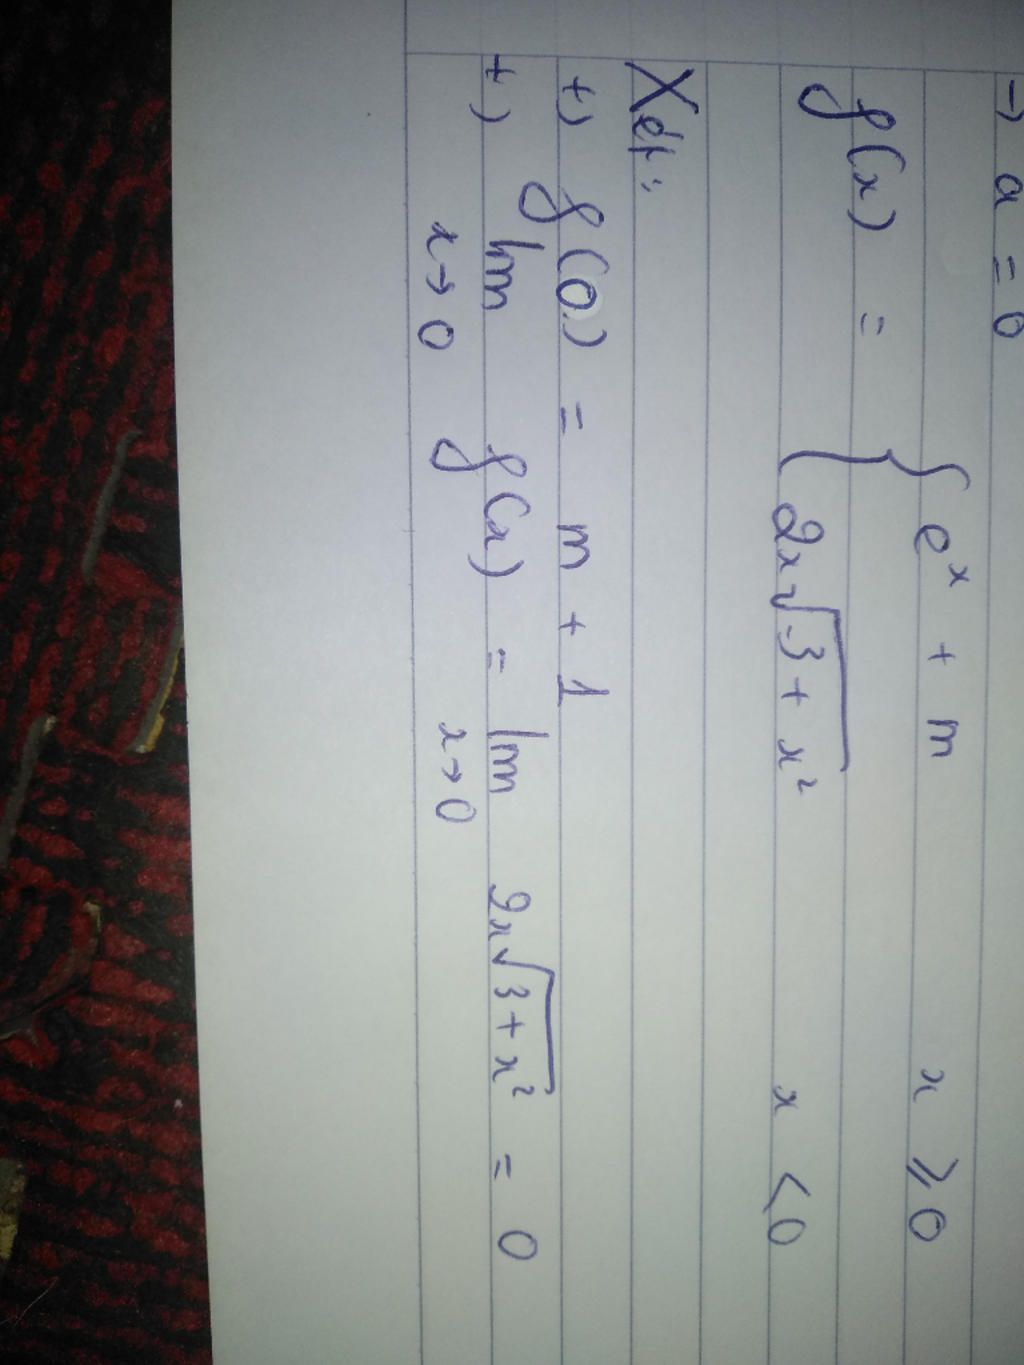 → a = 0
f(x) = { e^x + m x ≥ 0
2x√3 + x² x < 0
Xét:
+) f(0) = m + 1
+) lim f(x) = lim 2x√3 + x² = 0
x→0 x→0